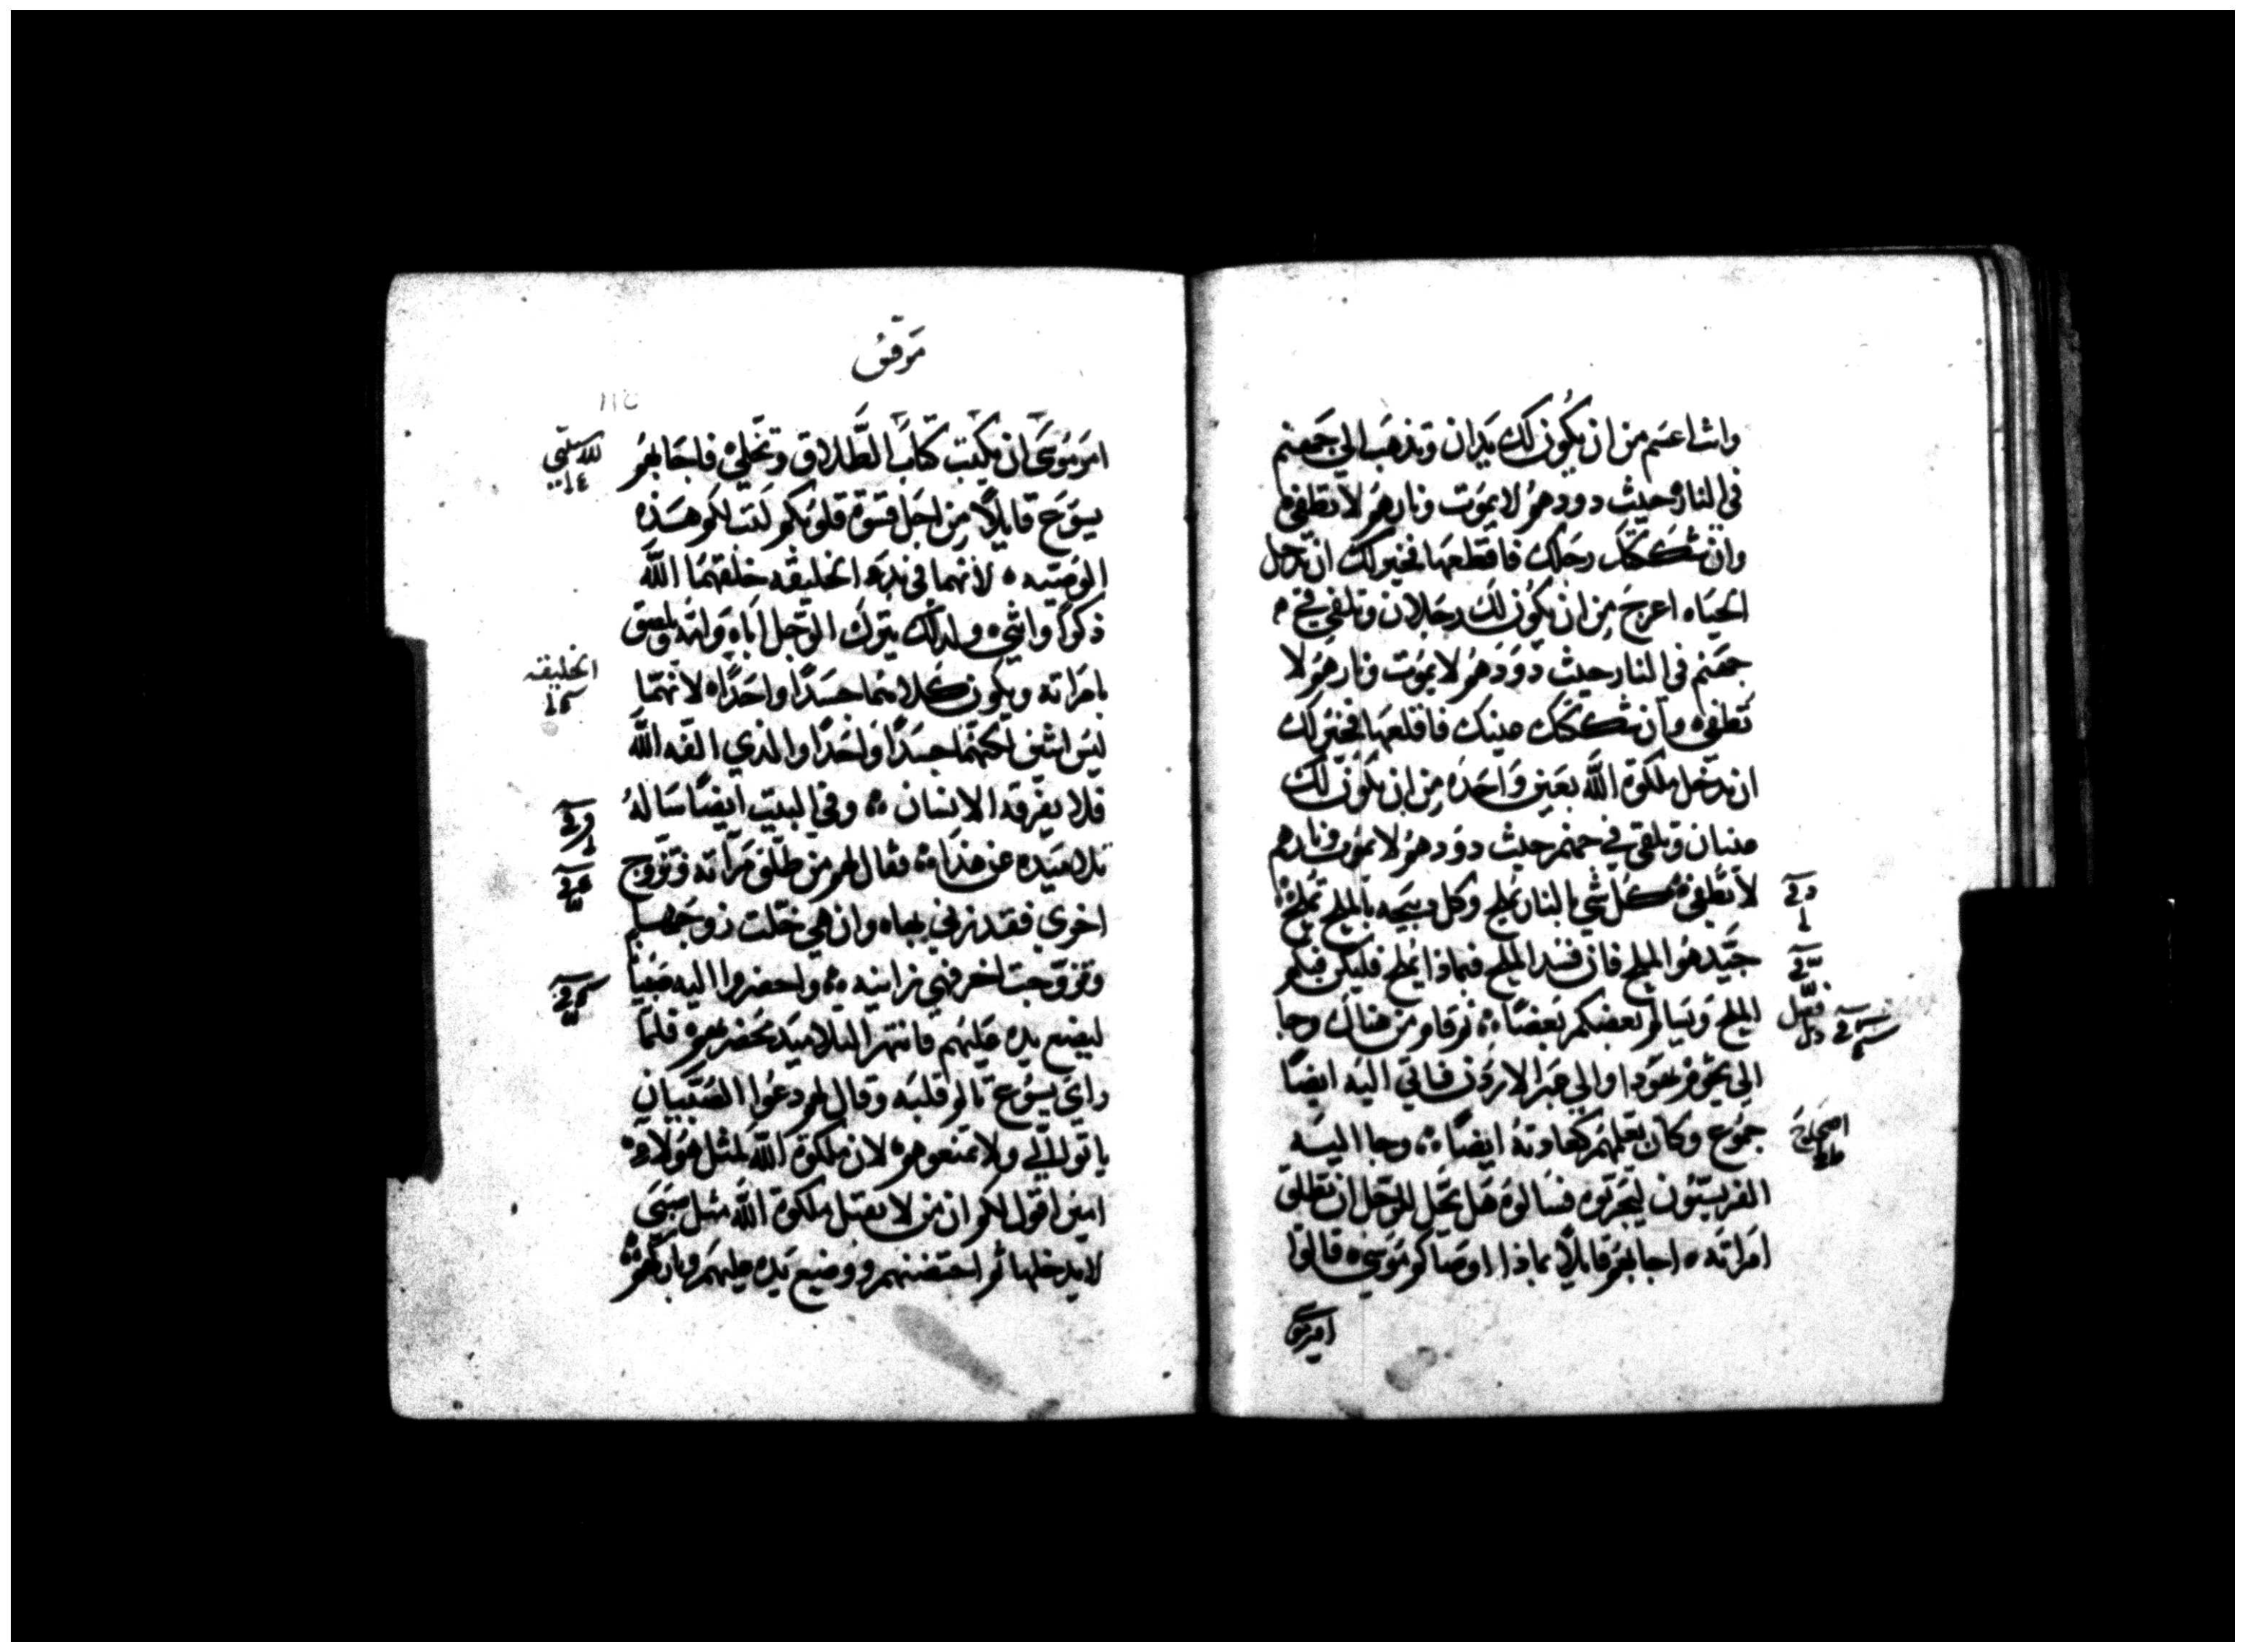 وانت اعسم من ان يكون لك يدان وتذهب الي جهنم
في النار حيث دودهم لا يموت ونارهم لا تطفي
وان شككتك رجلك فاقطعها فخير لك ان تدخل
الحياه اعرج من ان يكون لك رجلان وتلقي في
جهنم في النار حيث دودهم لا يموت ونارهم لا
تطفي وان شككتك عينك فاقلعها فخير لك
ان تدخل ملكوة الله بعين واحده من ان يكون لك
عينان وتلقي في جهنم حيث دودهم لا يموت ونارهم
لا تطفي كل شي بالنار يملح وكل ذبيحه بالملح تملح
جيد هو الملح فان فسد الملح فبماذا يملح فليكن فيكم
الملح وتسالموا بعضكم بعضًا ثم قام من هناك وجا
الى تخوم يهودا والي عبر الاردن فاتي اليه ايضًا
جموع وكان يعلمهم كعادته ايضًا وجا اليه
الفريسيون ليجربوه فسالوه هل يحل للرجل ان يطلق
امراته اجابهم قايلاً بماذا اوصاكم موسي قالوا
امر موسى
فصل
اصحاح
مرقس
امر موسى ان يكتب كتاب الطلاق وتخلي فاجابهم
يسوع قايلاً من اجل قسوة قلوبكم كتب لكم هذه
الوصيه لانهما في بدء الخليقه خلقهما الله
ذكرًا وانثي ولذلك يترك الرجل اباه وامه ويلصق
بامراته ويكون كلاهما جسدًا واحدًا لانهما
ليس اثنين لكنهما جسدًا واحدًا والذي الفه الله
فلا يفرقه الانسان وفي البيت ايضًا ساله
تلاميذه عن هذا فقال لهم من طلق مراته وتزوج
اخري فقد زني بها وان هي خلت زوجها
وتزوجت اخر فهي زانيه واحضروا اليه صبيانًا
ليضع يده عليهم فانتهر التلاميذ محضريهم فلما
راي يسوع تالم قلبه وقال لهم دعوا الصبيان
ياتوا الي ولا تمنعوهم لان ملكوة الله لمثل هولاء
امين اقول لكم ان من لا يقبل ملكوة الله مثل صبي
لا يدخلها ثم احتضنهم ووضع يده عليهم وباركهم
الخليقه